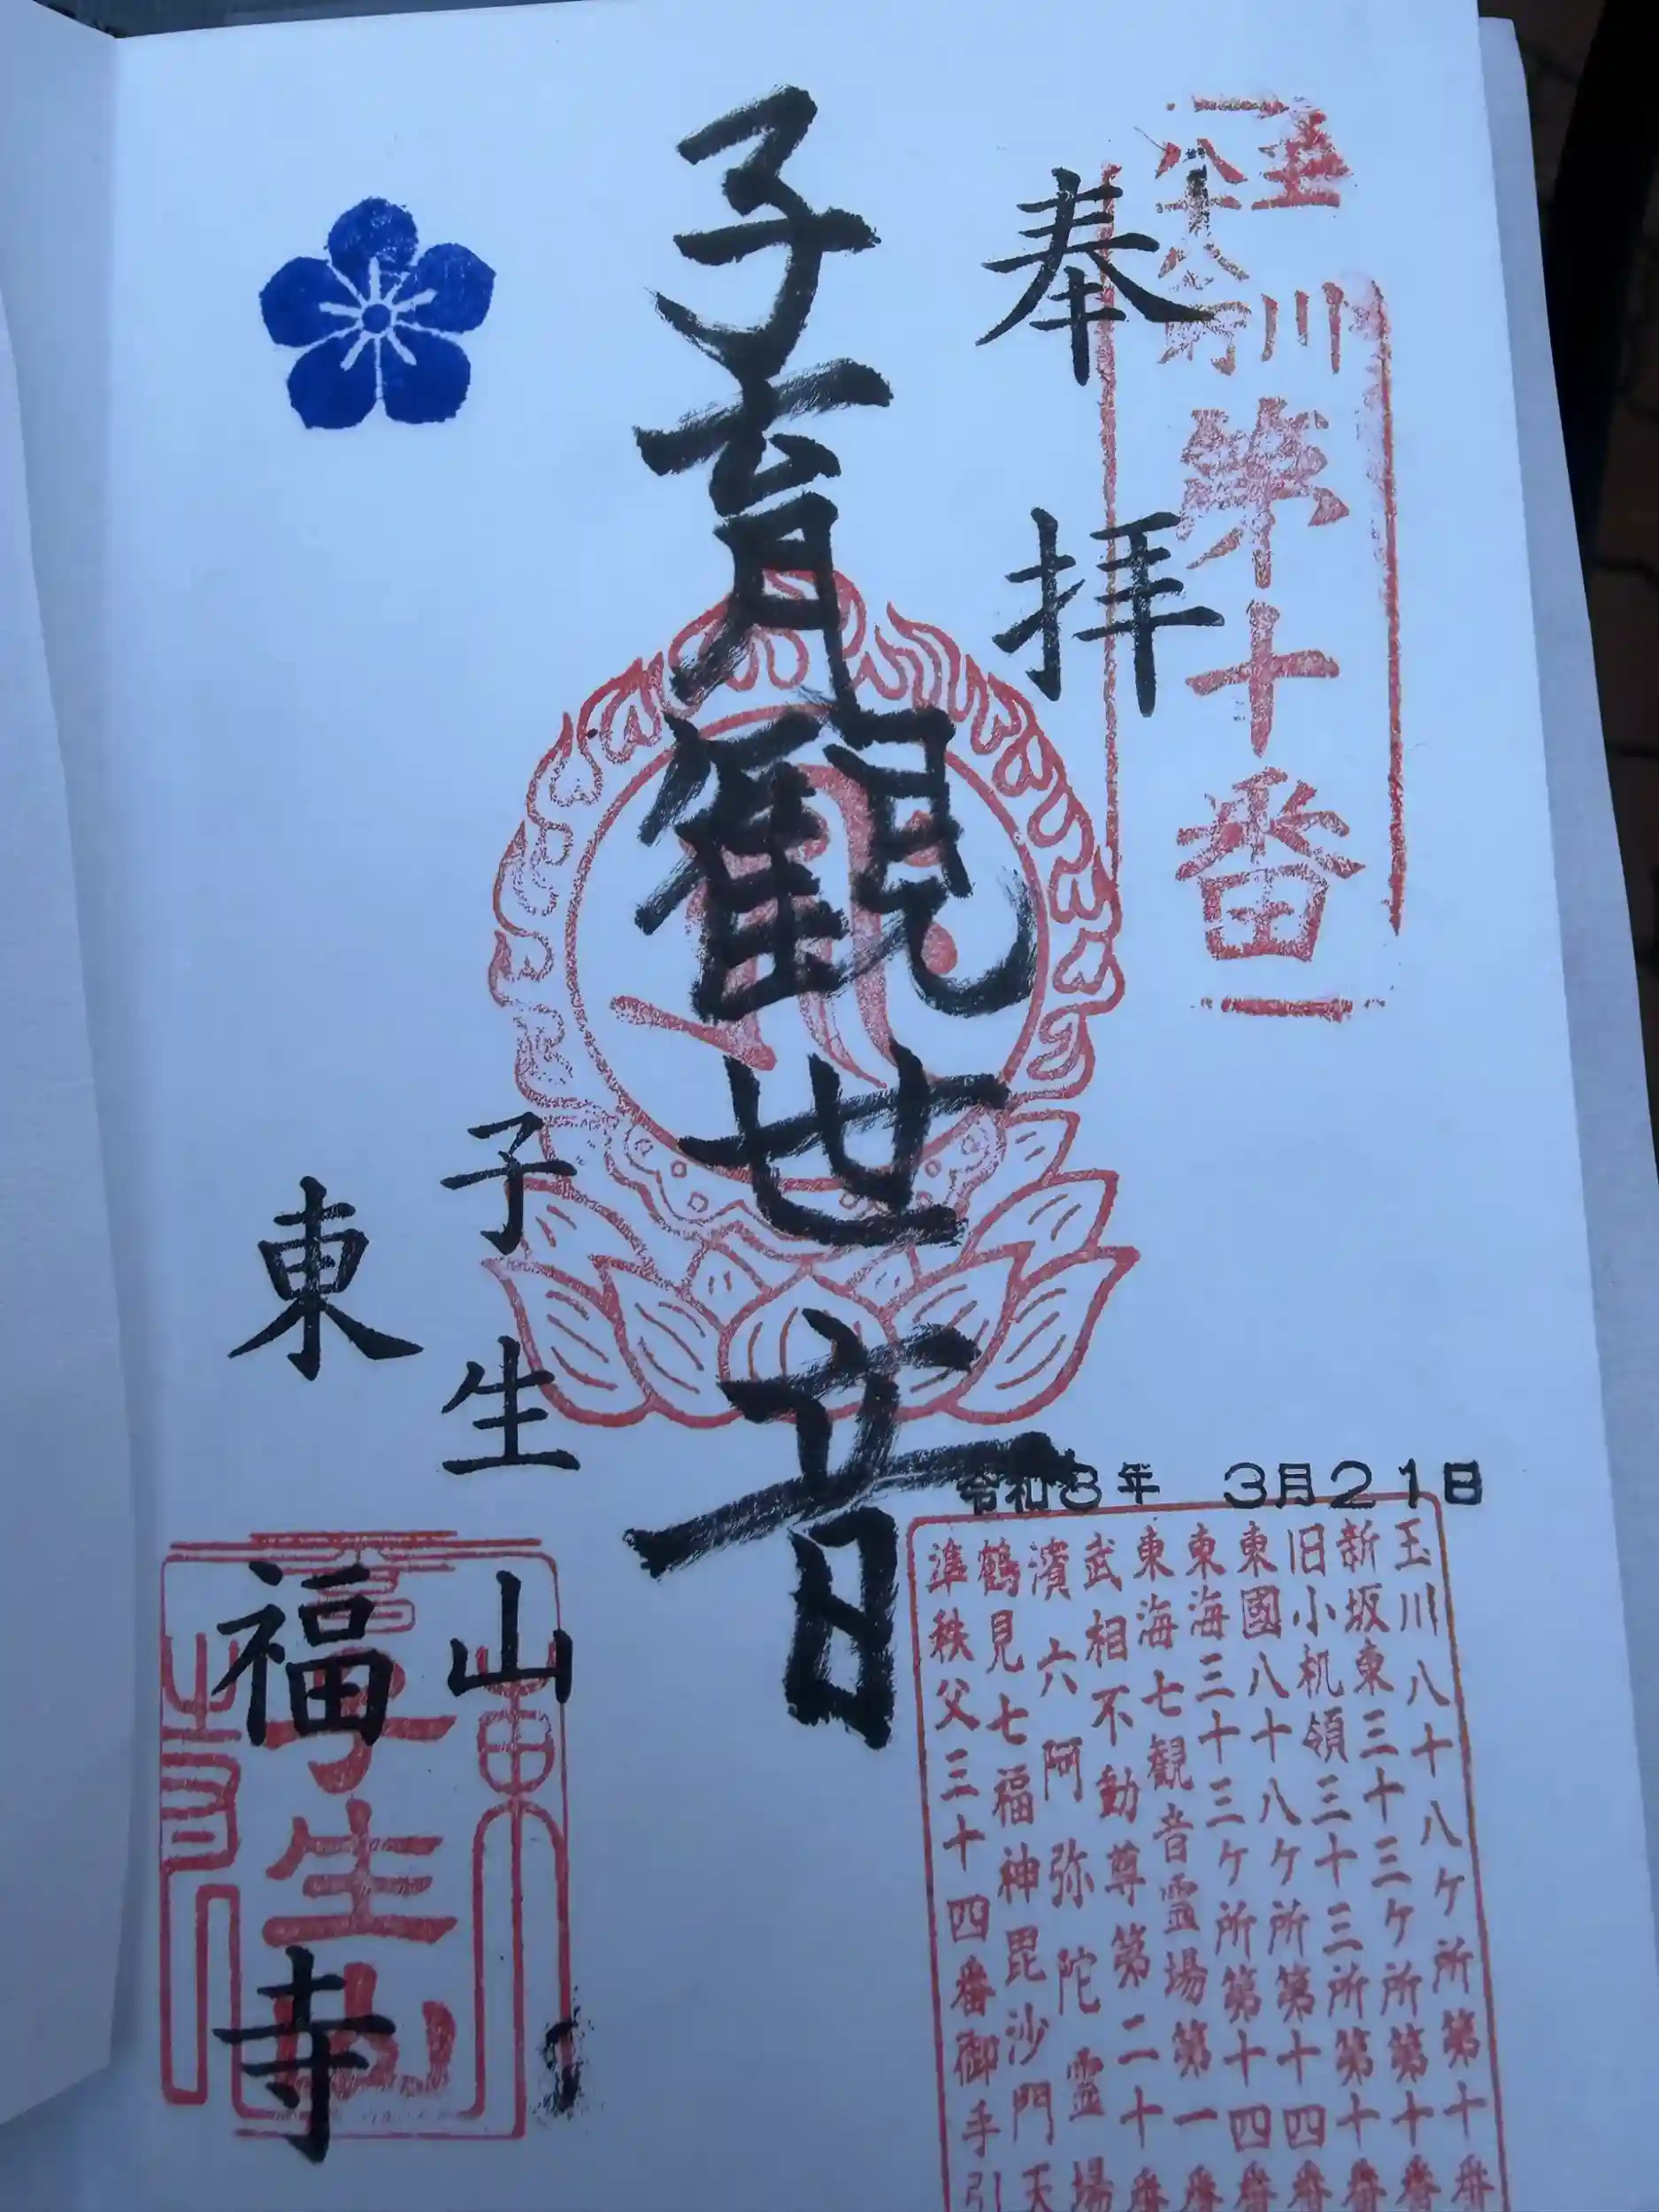 玉川八十八ヶ所
第十番
奉拝
子育観世音
子生山
東福寺
令和8年 3月21日
玉川八十八ケ所第十番
新坂東三十三ケ所第十番
旧小机領三十三所第十番
東國八十八ケ所第十四番
東海三十三ケ所第十四番
東海七観音霊場第一番
武相不動尊第二十番
濱六阿弥陀霊場
鶴見七福神毘沙門天
準秩父三十四番御手引